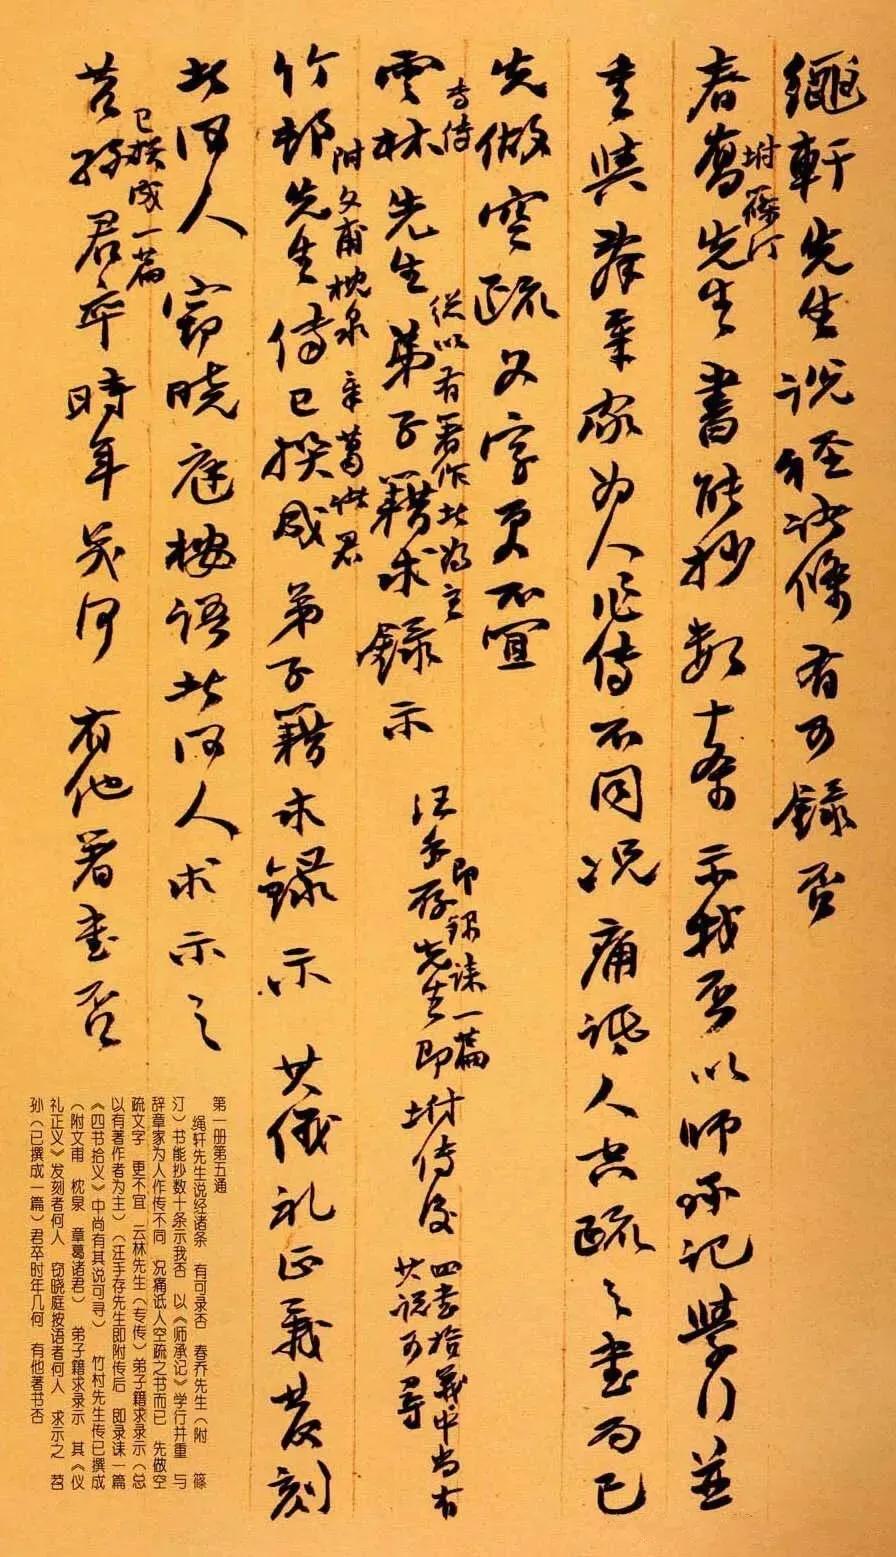 繩軒先生說經諸條有可録否
春喬先生書能抄數十條示我否以師承記學行並
坿篠汀
重與辭章家為人作傳不同况痛詆人空疏之書而已
先做空疏文字更不宜
雲林先生弟子籍求録示
專傳
總以有著作者為主
汪手存先生即坿傳後
即録誄一篇
四書拾義中尚有
其說可尋
竹邨先生傳已撰成弟子籍求録示 其儀礼正義發刻
附文甫枕泉 章葛諸君
者何人 竊曉庭按語者何人求示之
苕孫君卒時年幾何 有他著書否
已撰成一篇
第一册第五通
绳轩先生说经诸条 有可录否 春乔先生（附 篠
汀）书能抄数十条示我否 以《师承记》学行并重 与
辞章家为人作传不同 况痛诋人空疏之书而已 先做空
疏文字 更不宜 云林先生（专传）弟子籍求录示（总
以有著作者为主）（汪手存先生即附传后 即录诔一篇
《四书拾义》中尚有其说可寻） 竹村先生传已撰成
（附文甫 枕泉 章葛诸君） 弟子籍求录示 其《仪
礼正义》发刻者何人 窃晓庭按语者何人 求示之 苕
孙（已撰成一篇）君卒时年几何 有他著书否